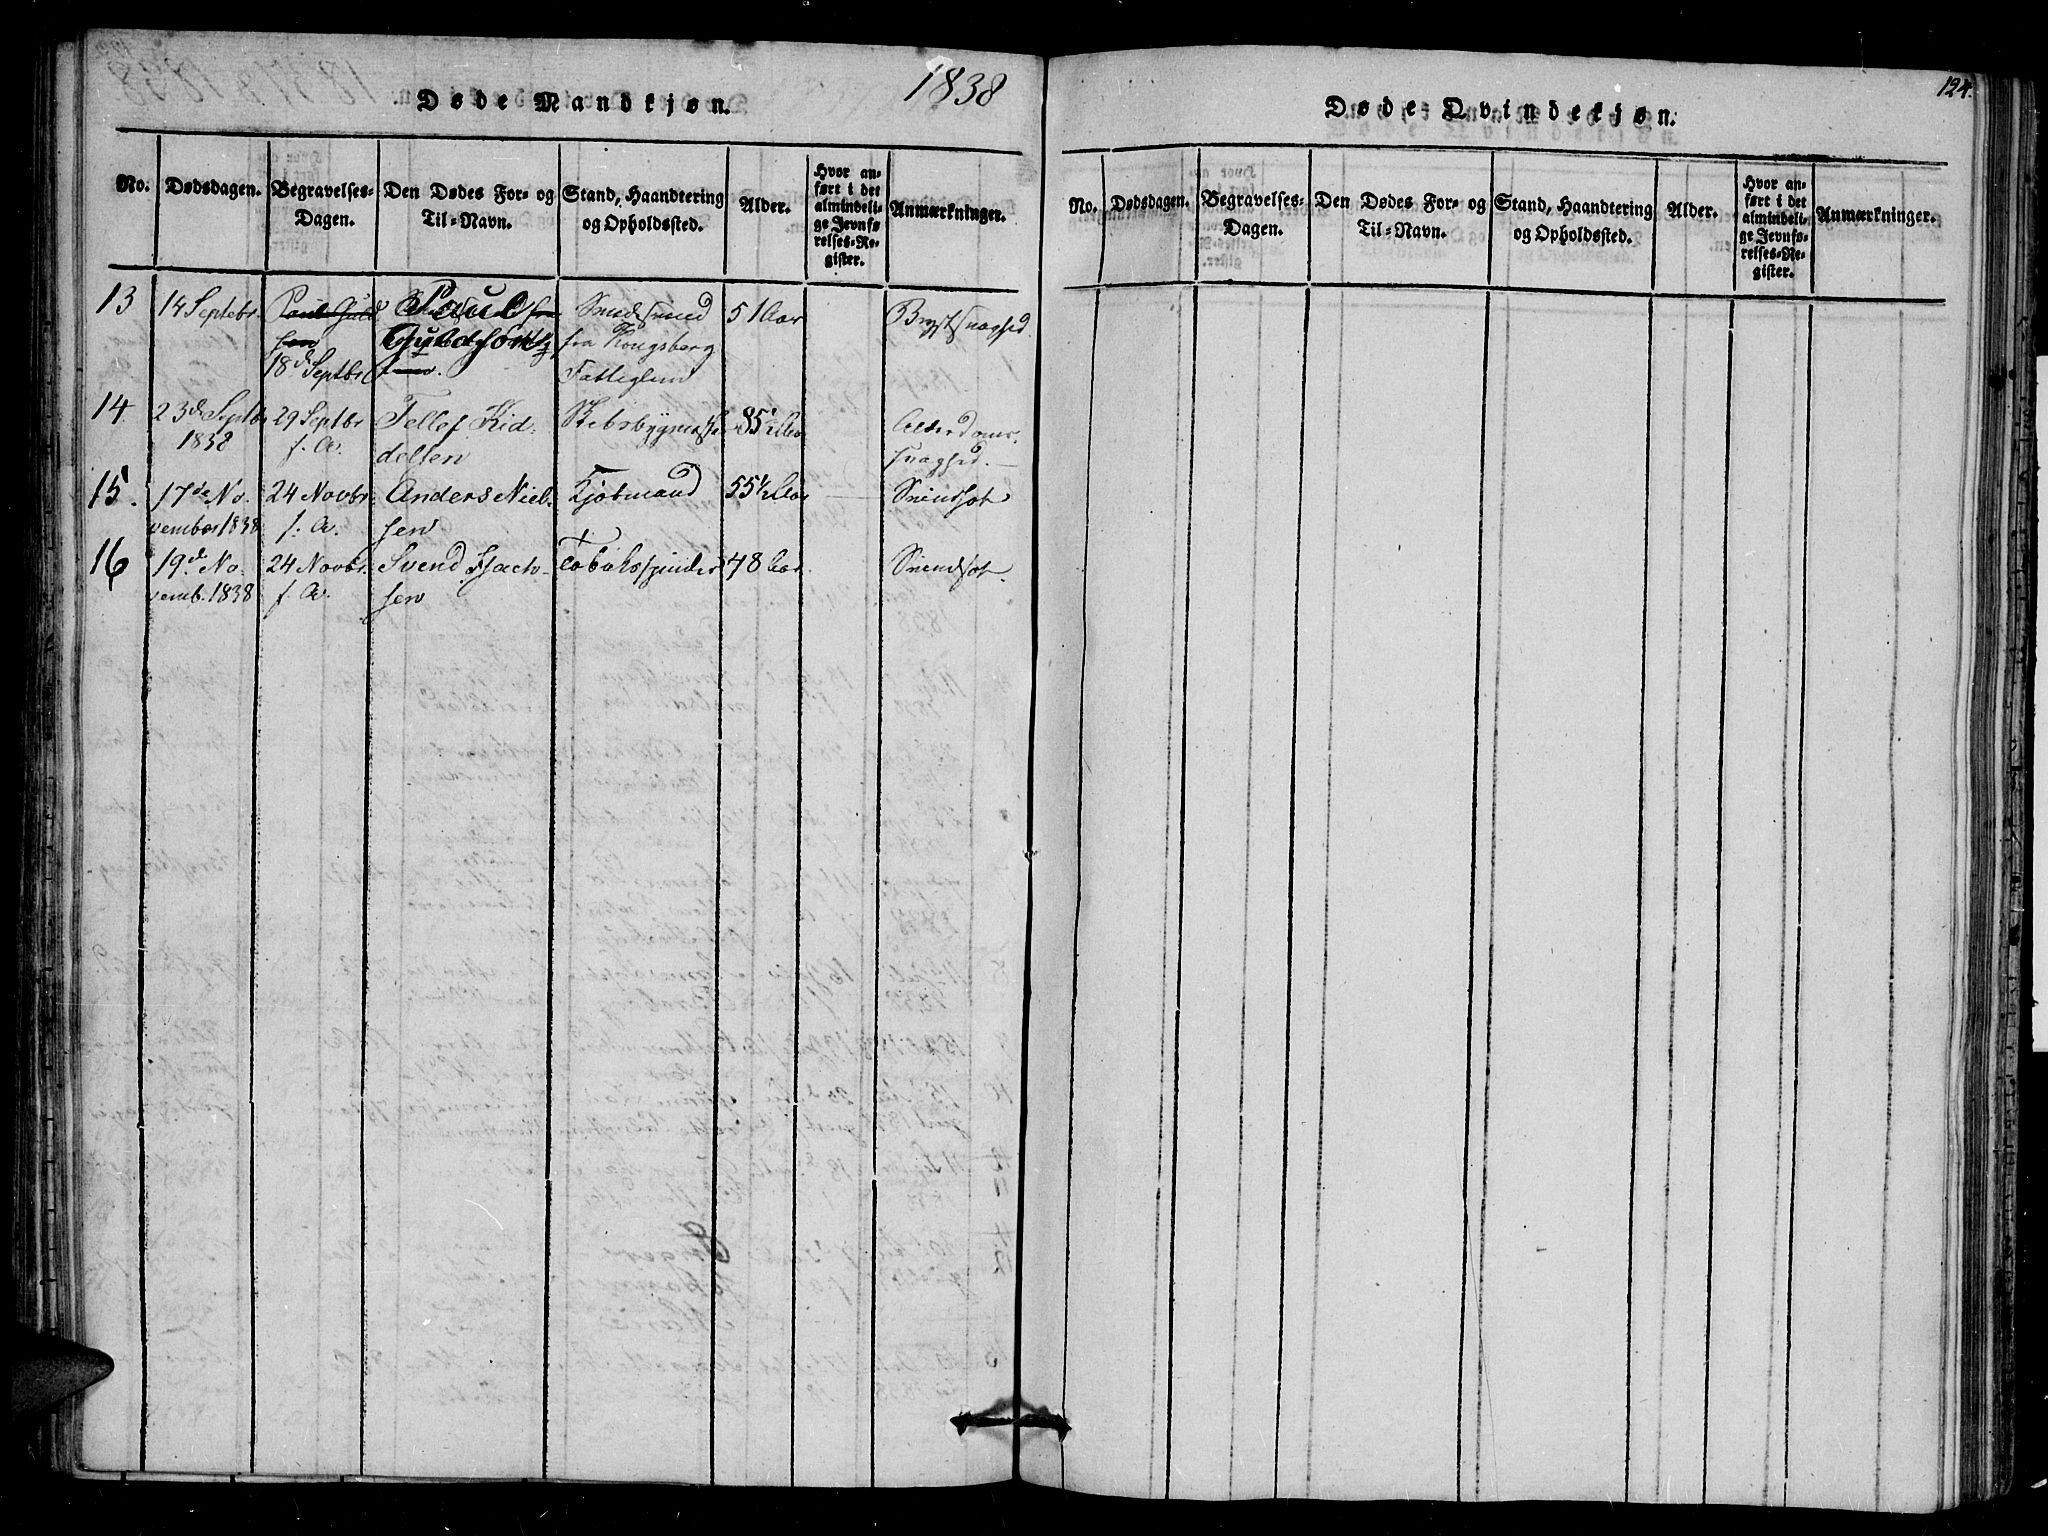 1838
Døde Mandkjøn.
No.
Dødsdagen.
Begravelses-
Dagen.
Den Dødes For- og
Til-Navn.
Stand, Haandtering
og Opholdssted.
Alder.
Hvor an-
ført i det
almindeli-
ge Jevnfø-
relses-Re-
gister.
Anmærkninger.
13
14 Septebr.
Paul Guld
sen
18d Septbr
Paul
Guldsen
fra Kongsberg
Fattiglem
51 Aar
Brystsvaghed
14.
23de Septbr
1838
29 Septbr
f. A.
Tellef Kid-
delsen
85½ Aar
Alderdoms-
svaghed.
15.
17de No-
vember 1838
24 Novbr.
f. A.
Anders Niel-
sen
Kjøbmand
55½ Aar
Svindsot
16
19de No-
vemb. 1838
24 Novbr.
f. A.
Svend Isach-
sen
Tobaksspinder
48 Aar
Svindsot.
124.
Døde Qvindekjøn.
No.
Dødsdagen.
Begravelses-
Dagen.
Den Dødes For- og
Til-Navn.
Stand, Haandtering
og Opholdssted.
Alder.
Hvor an-
ført i det
almindeli-
ge Jevnfø-
relses-Re-
gister.
Anmærkninger.